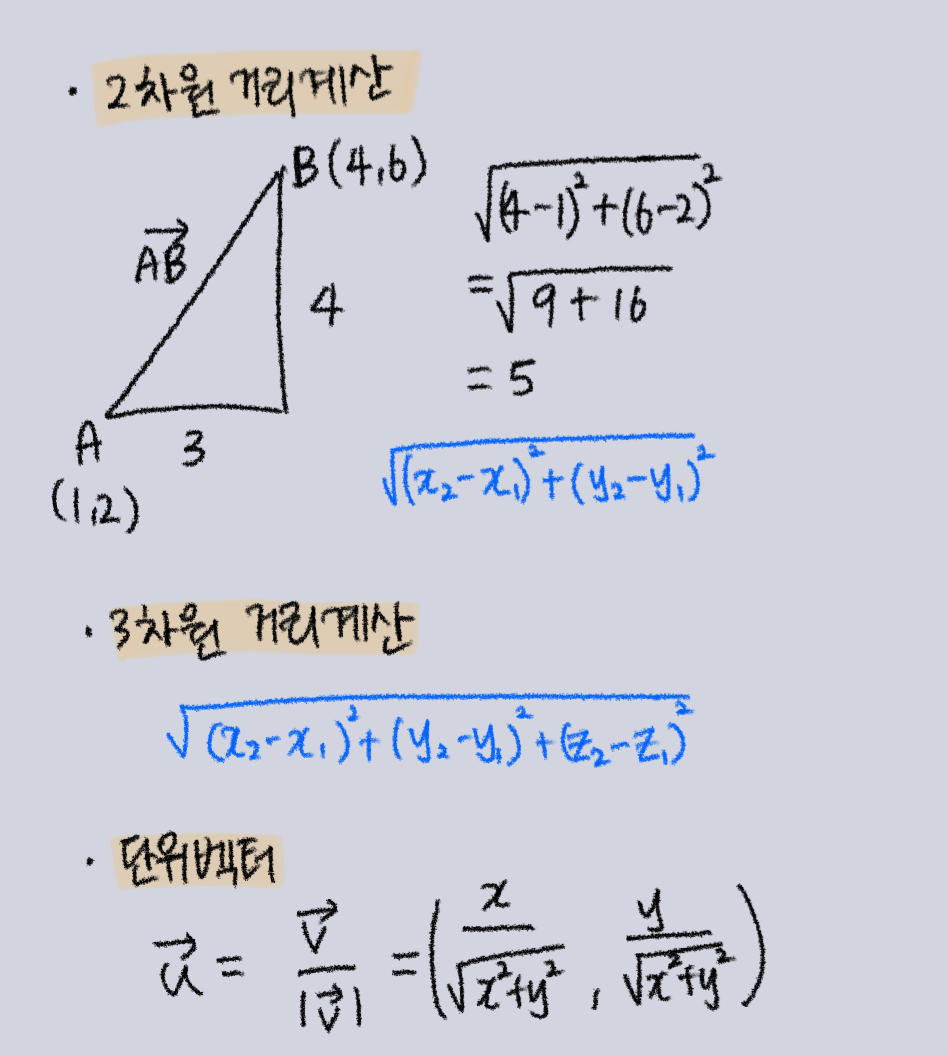 · 2차원 거리계산
B(4,6)
√(4-1)²+(6-2)²
AB→
4
=√9+16
=5
A
3
(1,2)
√(x₂-x₁)²+(y₂-y₁)²
· 3차원 거리계산
√(x₂-x₁)²+(y₂-y₁)²+(z₂-z₁)²
· 단위벡터
u→ = v→/|v→| = (x/√x²+y², y/√x²+y²)